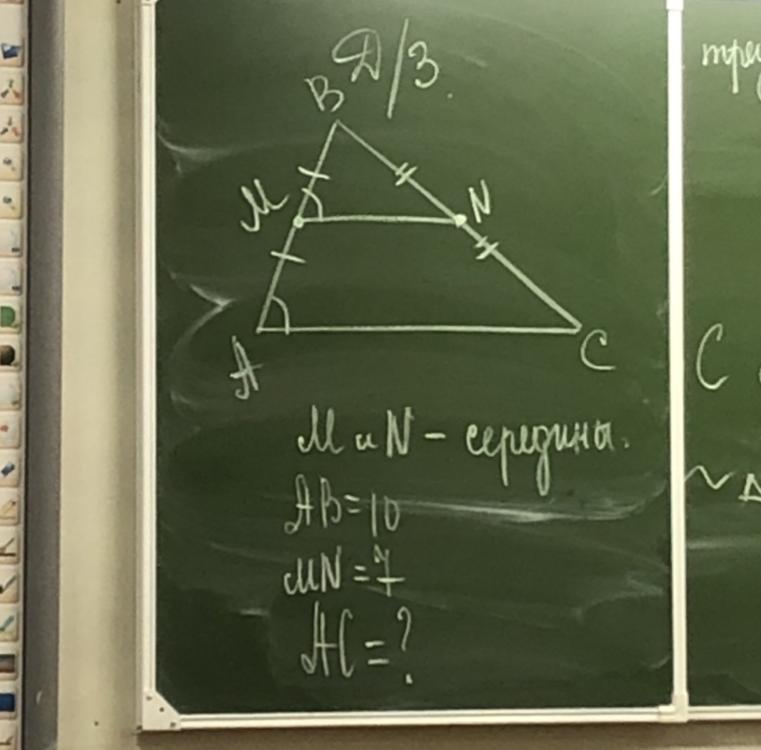 Д/З.
B
M
N
A
C
M и N - середины.
AB=10
MN=7
AC=?
C
~ Δ